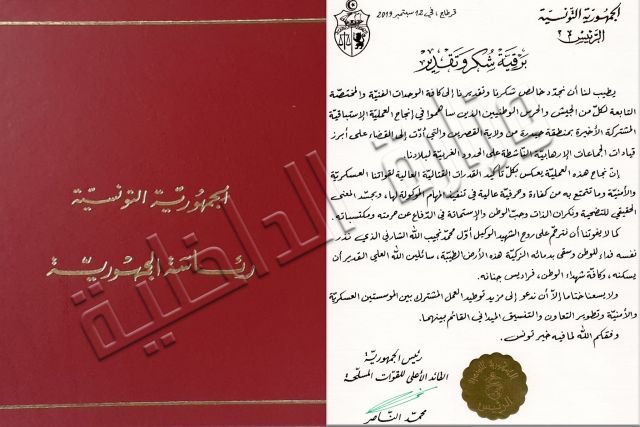 الجمهورية التونسية
رئاسة الجمهورية
وزارة الداخلية
الجمهورية التونسية
الرئيس
قرطاج، في 12 سبتمبر 2019
برقية شكر وتقدير
يطيب لنا أن نجدد خالص شكرنا وتقديرنا إلى كافة الوحدات الفنية والمختصة
التابعة لكل من الجيش والحرس الوطنيين الذين ساهموا في إنجاح العملية الإستباقية
المشتركة الأخيرة بمنطقة حيدرة من ولاية القصرين والتي أدت إلى القضاء على أبرز
قيادات الجماعات الإرهابية الناشطة على الحدود الغربية لبلادنا.
إن نجاح هذه العملية يعكس بكل تأكيد القدرات القتالية العالية لقواتنا العسكرية
والأمنية وما تتمتع به من كفاءة وحرفية عالية في تنفيذ المهام الموكولة لها، ويجسد المعنى
الحقيقي للتضحية ونكران الذات وحب الوطن والإستماتة في الدفاع عن حرمته ومكتسباته.
كما لا يفوتنا أن نترحم على روح الشهيد الوكيل أول محمد نجيب الله الشارني الذي نذر
نفسه فداء للوطن وسقى بدمائه الزكية هذه الأرض الطيبة، سائلين الله العلي القدير أن
يسكنه، وكافة شهداء الوطن، فراديس جنانه.
ولا يسعنا ختاما إلا أن ندعو إلى مزيد توطيد العمل المشترك بين المؤسستين العسكرية
والأمنية وتطوير التعاون والتنسيق الميداني القائم بينهما.
وفقكم الله لما فيه خير تونس.
رئيس الجمهورية
القائد الأعلى للقوات المسلحة
محمد الناصر